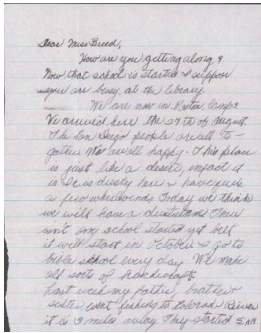 Dear Miss Breed,
How are you getting along?
Now that school is started I suppose
you are busy at the library.
We are now in Camp 3
We arrived here the 27th of August.
The San Diego people are all to-
gether. We are all happy. This place
is just like a desert, in fact it
is. It is dusty here & have quite
a few whirlwinds. Today we think
we will have a duststorm. There
isn't any school started yet but
it will start in October. I go to
bible school every day. We make
all sorts of handicraft.
Last week my father, brother
sister went fishing to Colorado River
it is 3 miles away. They started 5 AM